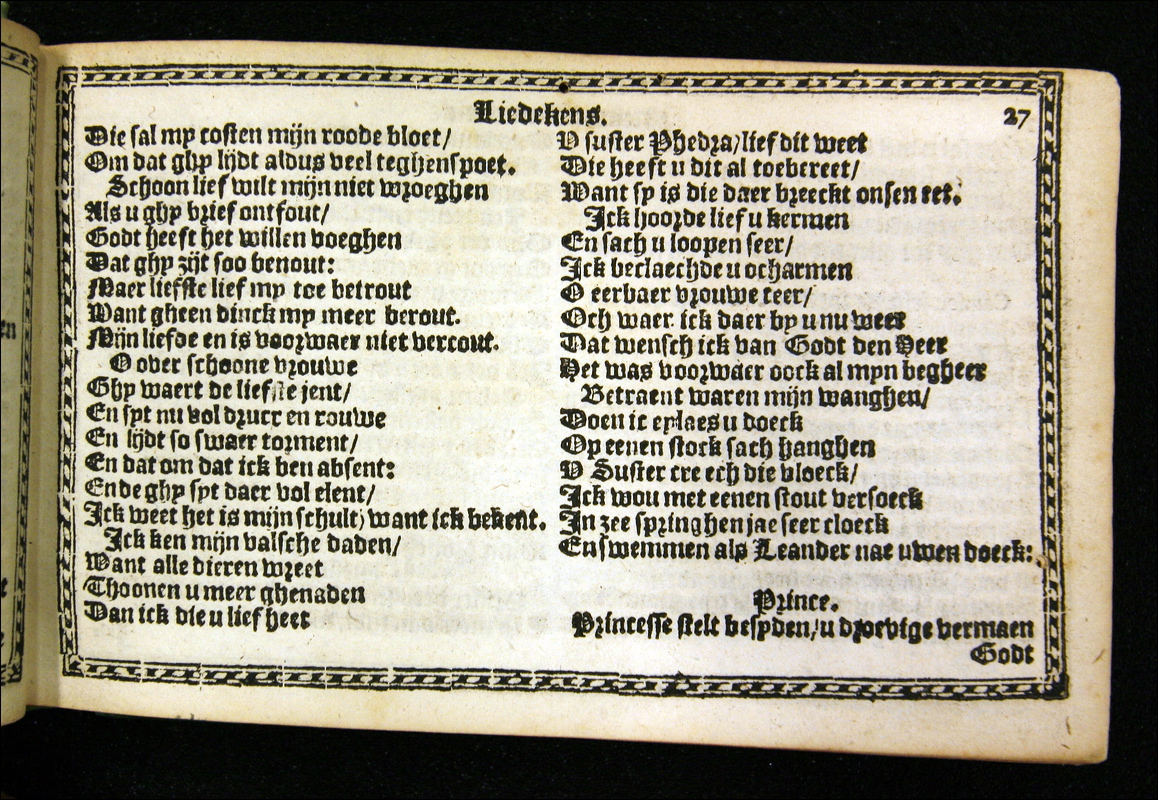 Liedekens.
27
Die sal my costen mijn roode bloet/
Om dat ghy lijdt aldus veel teghenspoet.
Schoon lief wilt mijn niet wroeghen
Als u ghy brief ontfout/
Godt heeft het willen voeghen
Dat ghy zijt soo benout:
Maer liefste lief my toe betrout
Want gheen dinck my meer berout.
Mijn liefde en is voorwaer niet vercout.
O over schoone vrouwe
Ghy waert de liefste jent/
En syt nu vol druck en rouwe
En lijdt so swaer torment/
En dat om dat ick ben absent:
Ende ghy syt daer vol elent/
Ick weet het is mijn schult) want ick bekent.
Ick ken mijn valsche daden/
Want alle dieren wreet
Thoonen u meer ghenaden
Dan ick die u lief heet
V suster Phedra/lief dit weet
Die heeft u dit al toebereet/
Want sy is die daer breeckt onsen eet.
Ick hoorde lief u kermen
En sach u loopen seer/
Ick beclaechde u ocharmen
O eerbaer vrouwe teer/
Och waer ick daer by u nu weer
Dat wensch ick van Godt den Heer
Het was voorwaer oock al myn begheer
Betraent waren mijn wanghen/
Doen ic eylaes u doeck
Op eenen stock sach hanghen
V Suster cre ech die vloeck/
Ick wou met eenen stout versoeck
In zee springhen jae seer cloeck
En swemmen als Leander nae uwen doeck:
Prince.
Princesse stelt besyden/u droevige vermaen
Godt